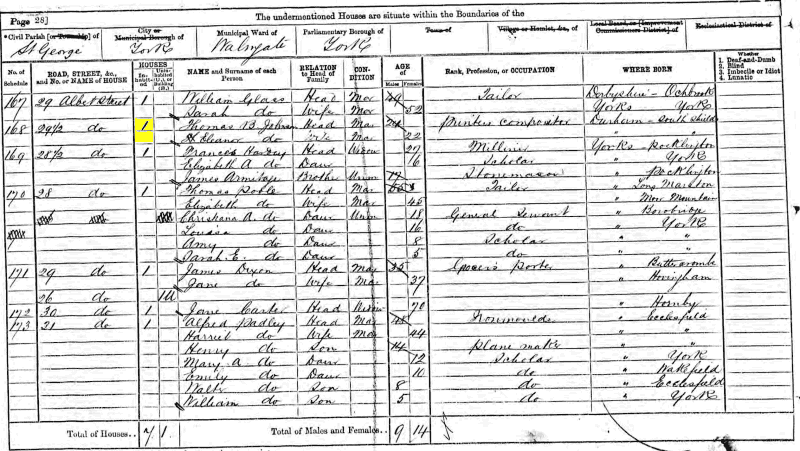 The undermentioned Houses are situate within the Boundaries of the
Page 28]
*Civil Parish [or Township] of City or Municipal Borough of Municipal Ward of Parliamentary Borough of Town of Village or Hamlet, &c., of Local Board, or [Improvement Commissioners District] of Ecclesiastical District of
St George York Walmgate York
No. of Schedule ROAD, STREET, &c., and No. or NAME of HOUSE HOUSES Inhabited Uninhabited (U.), or Building (B.) NAME and Surname of each Person RELATION to Head of Family CONDITION AGE of Males Females Rank, Profession, or OCCUPATION WHERE BORN Whether 1. Deaf-and-Dumb 2. Blind 3. Imbecile or Idiot 4. Lunatic
167 29 Albert Street 1 William Glass Head Mar Tailor Derbyshire - Ochbrook
Sarah do Wife Mar 52 Yorks York
168 29½ do 1 Thomas B. Head Mar Printer compositor Durham - South Shields
H Eleanor do Wife Mar 22 " "
169 28½ do 1 Frances Head Widow 27 Milliner Yorks Pocklington
Elizabeth A do Daur 16 Scholar " York
James Armitage Brother Unm 17 Stonemason " Pocklington
170 28 do 1 Thomas Head Mar Tailor " Long Marston
Elizabeth do Wife Mar 45 " Moor Mountain
do Christiana A. do Daur Unm 18 General Servant " Borobridge
Louisa do Daur 16 do " York
Amy do Daur 8 Scholar " "
Sarah E. do Daur 5 do " "
171 29 do 1 James Dixon Head Mar 35 Grocer's Porter " Buttercrambe
Jane do Wife Mar 37 " Hovingham
26 do 1U
172 30 do 1 Jane Carter Head Widow 70 " Hornby
173 31 do 1 Alfred Padley Head Mar " Ecclesfield
Harriet do Wife Mar 44 " "
Henry do Son 14 plane maker " York
Mary A. do Daur 12 Scholar " York
Emily do Daur 10 do " Wakefield
Walter do Son 8 do " Ecclesfield
William do Son 5 do " York
Total of Houses... 7 1. Total of Males and Females... 9 14